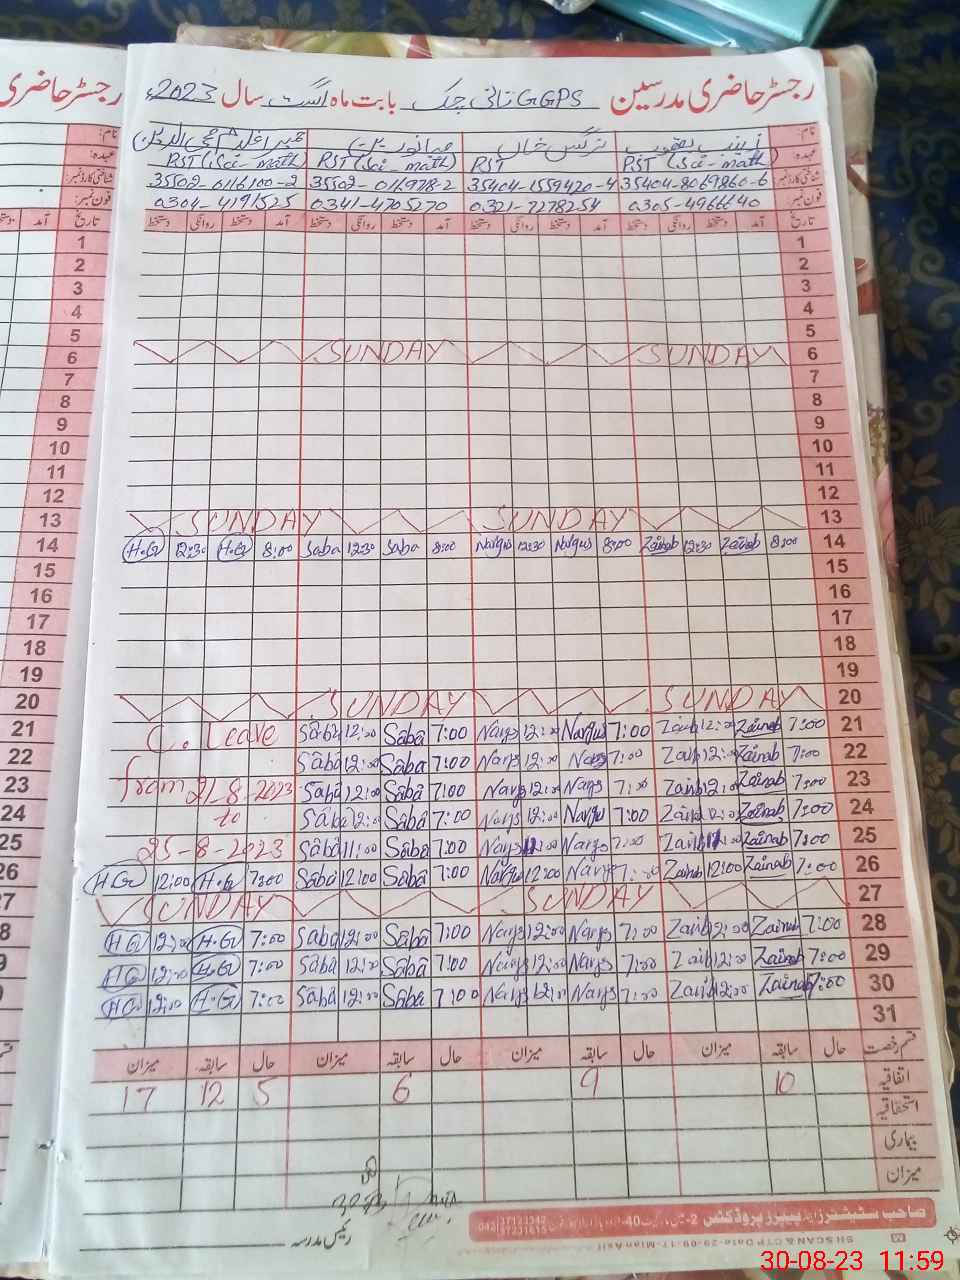 رجسٹر حاضری مدرسین GGPS نانی چک بابت ماہ اگست سال 2023ء
نام: زینب یعقوب نرگس خان
عہدہ: PST (Sci - math) PST PST (Sci - math) PST (Sci - math)
شناختی کارڈ نمبر: 35404-8069860-6 35404-1559420-4 35502-0116100-2
فون نمبر: 0305-4966640 0321-7278254 0341-4705270 0304-4191525
تاریخ آمد دستخط روانگی دستخط آمد دستخط روانگی دستخط آمد دستخط روانگی دستخط آمد دستخط روانگی دستخط
1 1
2 2
3 3
4 4
5 5
6 SUNDAY SUNDAY 6
7 7
8 8
9 9
10 10
11 11
12 12
13 SUNDAY SUNDAY 13
14 H.G 12:30 H.G 8:00 Saba 12:30 Saba 8:00 Nargis 12:30 Nargis 8:00 Zainab 12:30 Zainab 8:00 14
15 15
16 16
17 17
18 18
19 19
20 SUNDAY SUNDAY 20
21 C. Leave Saba 12:00 Saba 7:00 Nargs 12:00 Nargis 7:00 Zainb 12:00 Zainab 7:00 21
22 Saba 12:00 Saba 7:00 Nargs 12:00 Nargs 7:00 Zainb 12:00 Zainab 7:00 22
23 from 21-8-2023 Saba 12:00 Saba 7:00 Nargs 12:00 Nargs 7:00 Zainb 12:00 Zainab 7:00 23
24 to Saba 12:00 Saba 7:00 Nargs 12:00 Nargis 7:00 Zainb 12:00 Zainab 7:00 24
25 25-8-2023 Saba 11:00 Saba 7:00 Nargs Nargs 7:00 Zainb Zainab 7:00 25
26 H.G 12:00 H.G 7:00 Saba 12:00 Saba 7:00 Nargis 12:00 Nargs 7:00 Zainb 12:00 Zainab 7:00 26
27 SUNDAY SUNDAY 27
28 H.G 12:00 H.G 7:00 Saba 12:00 Saba 7:00 Nargs 12:00 Nargs 7:00 Zainb 12:00 Zainab 7:00 28
29 H.G 12:00 H.G 7:00 Saba 12:00 Saba 7:00 Nargs 12:00 Nargs 7:00 Zainb 12:00 Zainab 7:00 29
30 H.G 12:00 H.G 7:00 Saba 12:00 Saba 7:00 Nargs 12:00 Nargs 7:00 Zainb 12:00 Zainab 7:00 30
31
قسم رخصت حال سابقہ میزان حال سابقہ میزان حال سابقہ میزان حال سابقہ میزان
اتفاقیہ 10 9 6 5 12 17
استحقاقیہ
بیماری
میزان
رئیس مدرسہ
صاحب سٹیشنرز اینڈ پیپرز پروڈکٹس
30-08-23 11:59